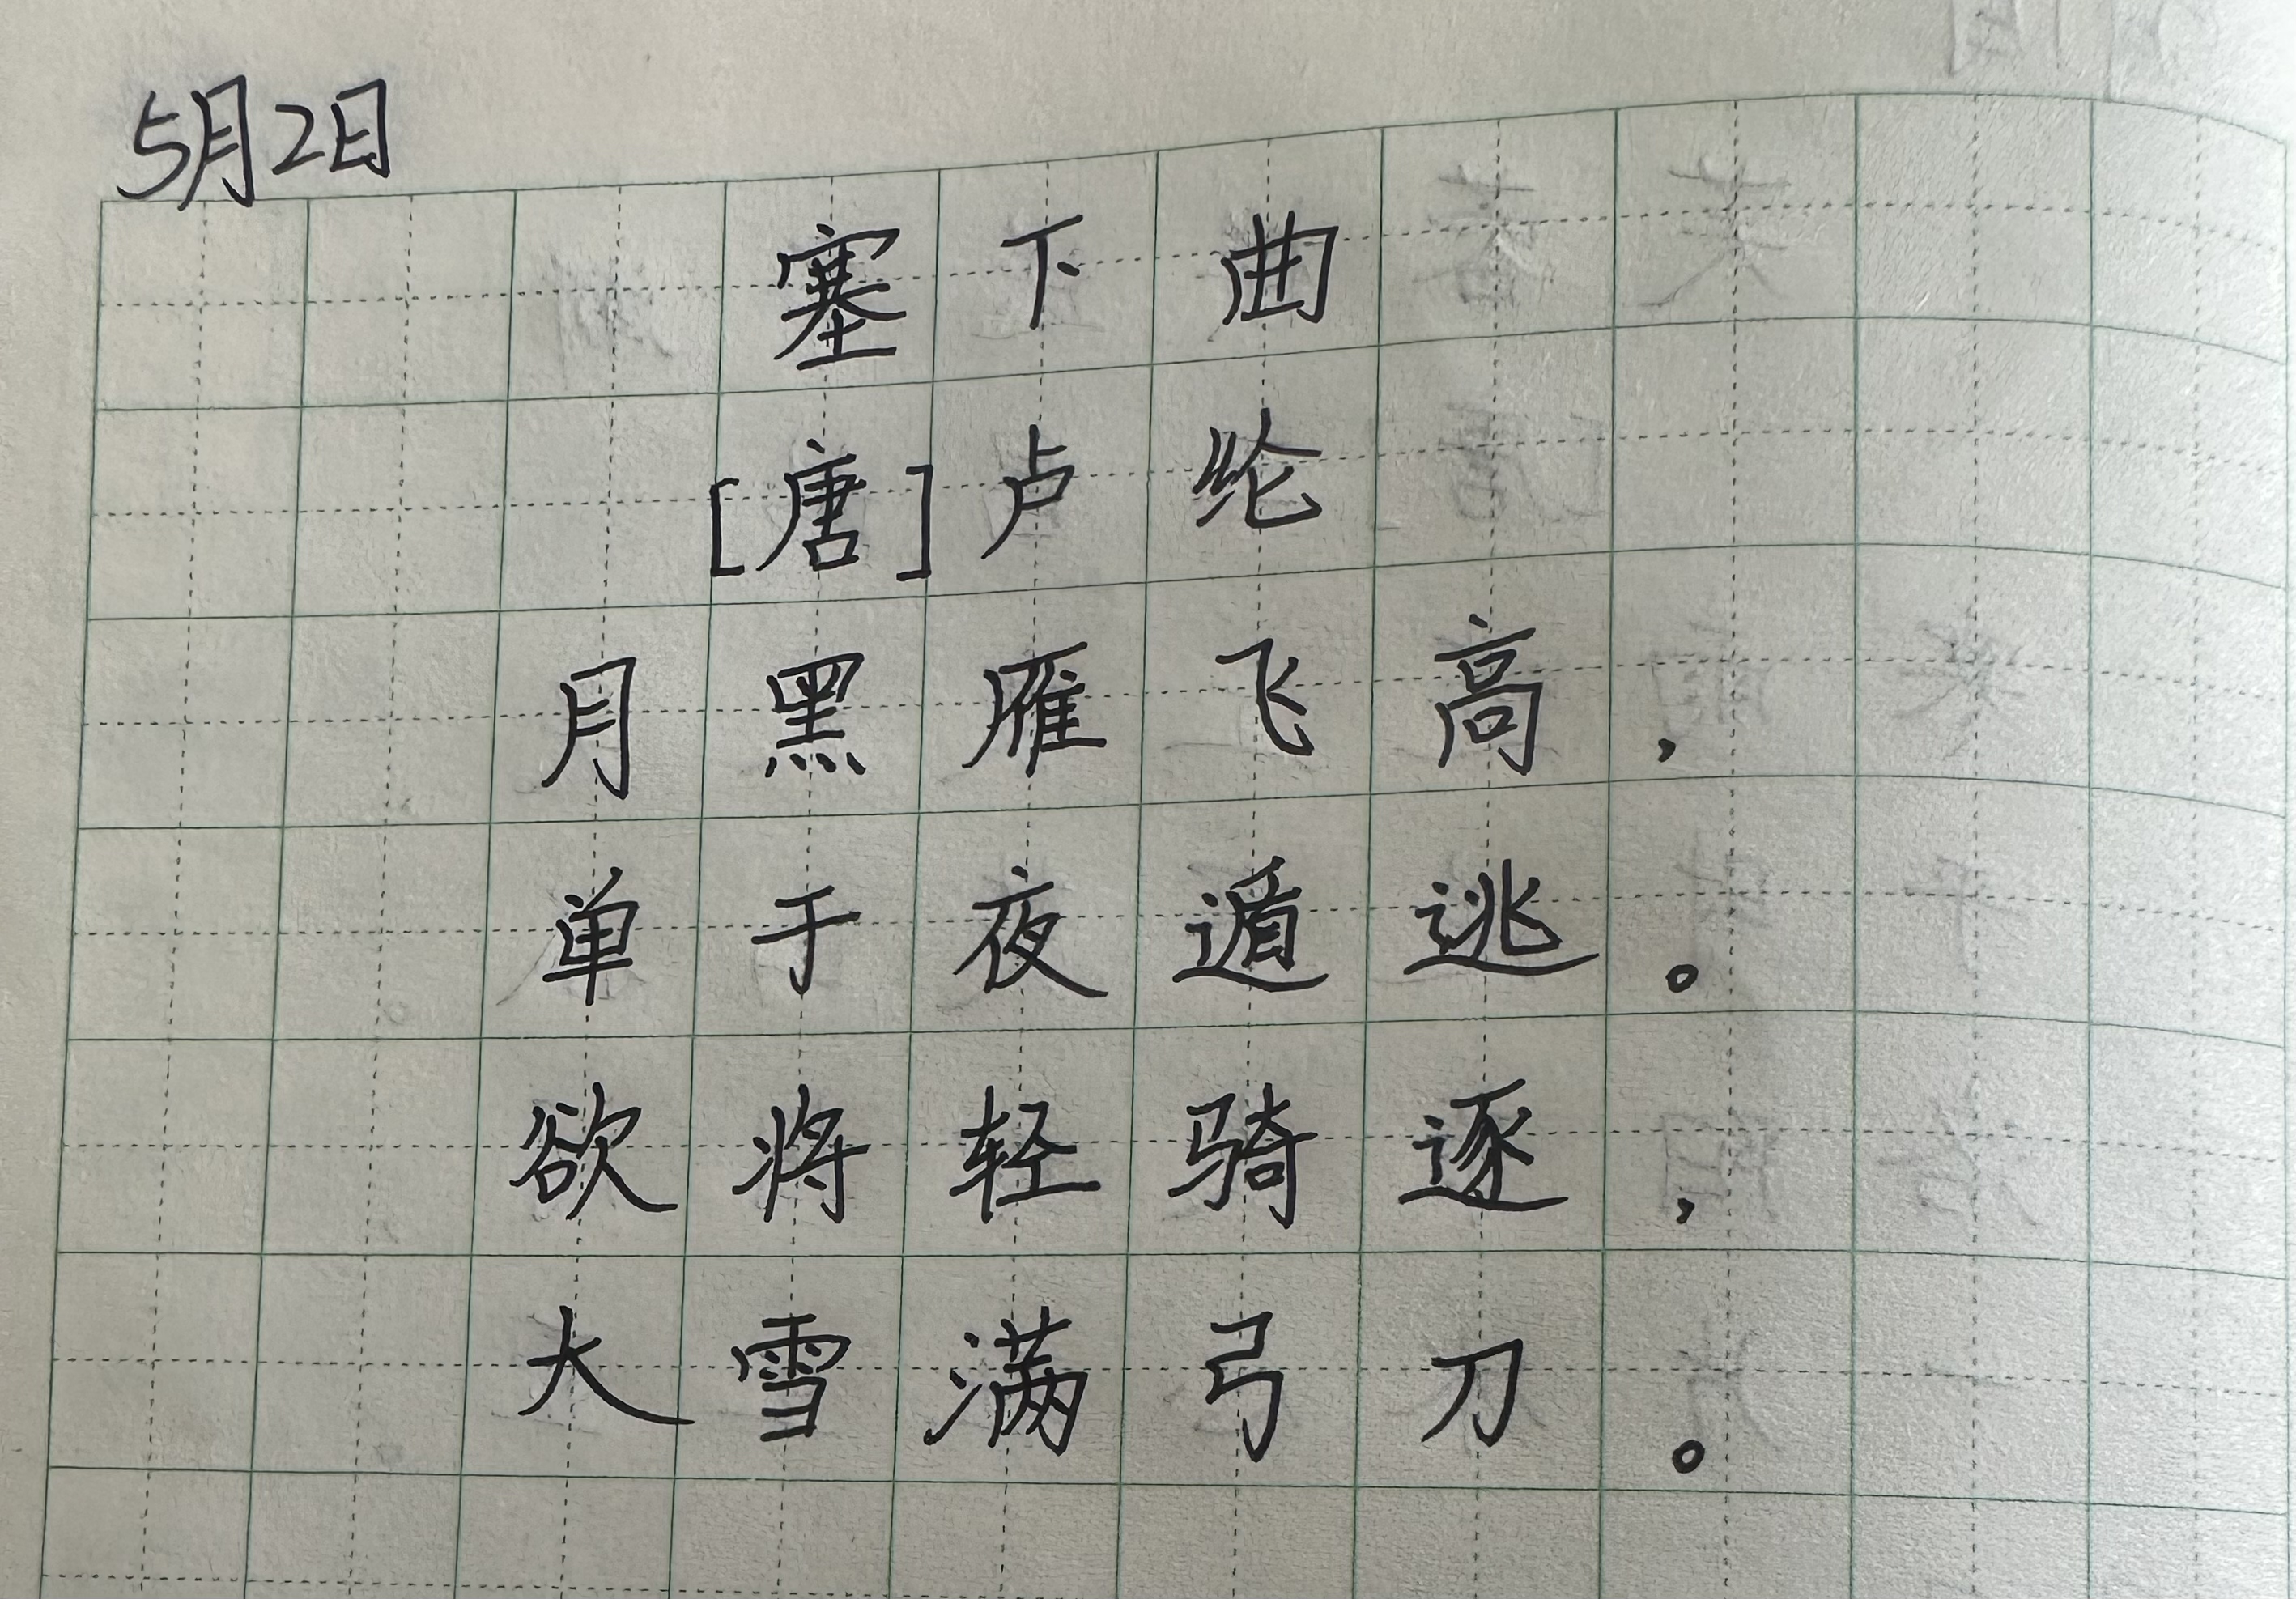 5月2日
塞下曲
[唐]卢纶
月黑雁飞高，
单于夜遁逃。
欲将轻骑逐，
大雪满弓刀。